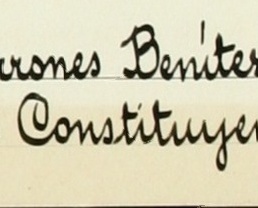 arrones Benítes
Constituyen